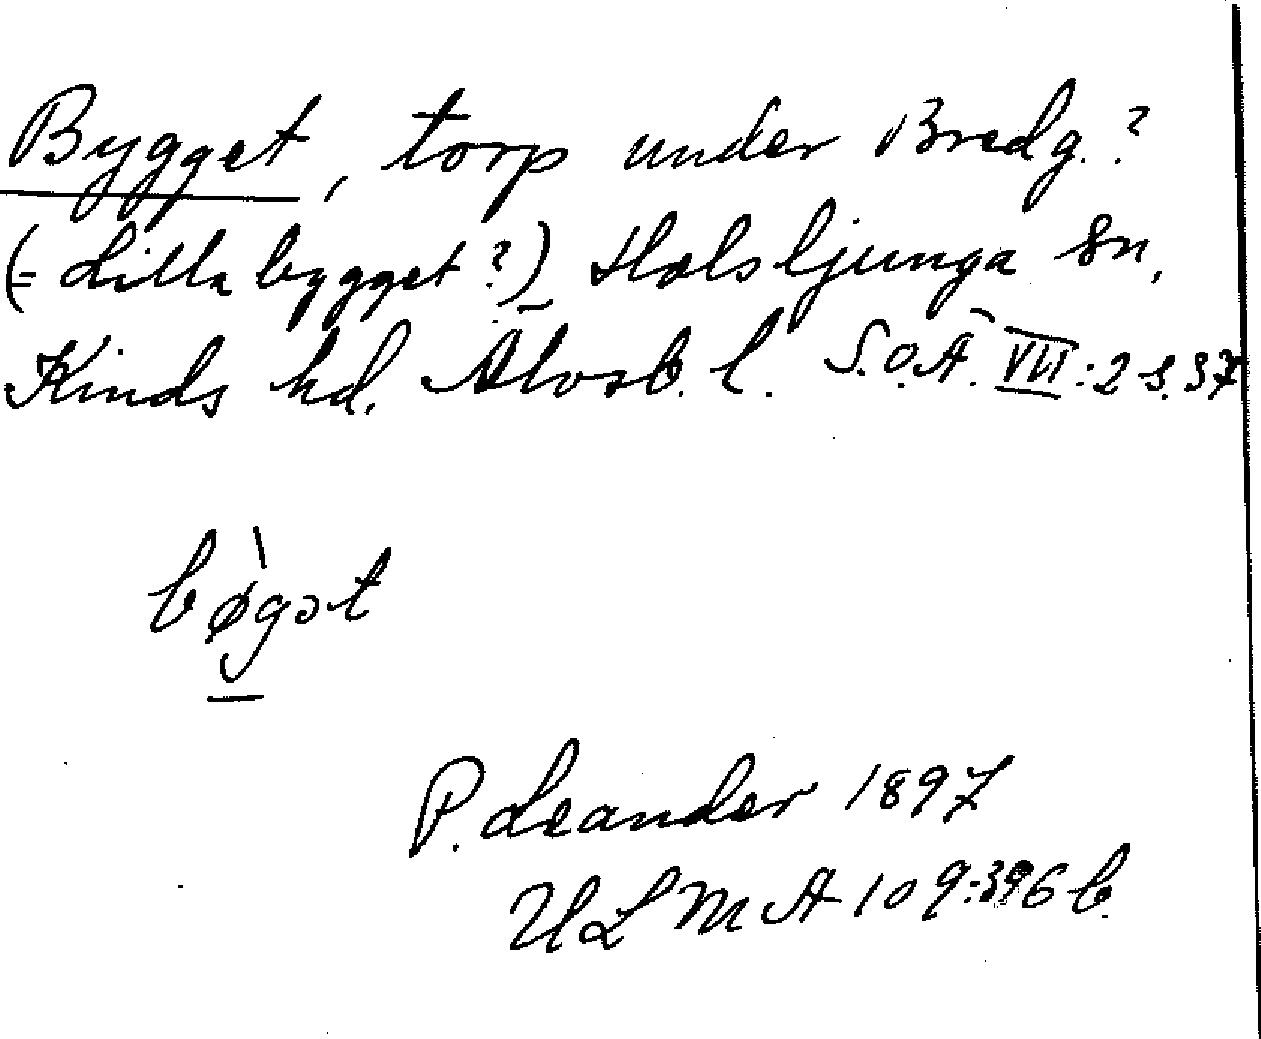 Bygget, torp under Bredg.?
(= Lilla bygget?) Holsljunga sn,
Kinds hd. Älvsb. l. S.O.Ä. VII:2 s. 37
bø̀gət
P. Leander 1897
ULMA 109:396 b.